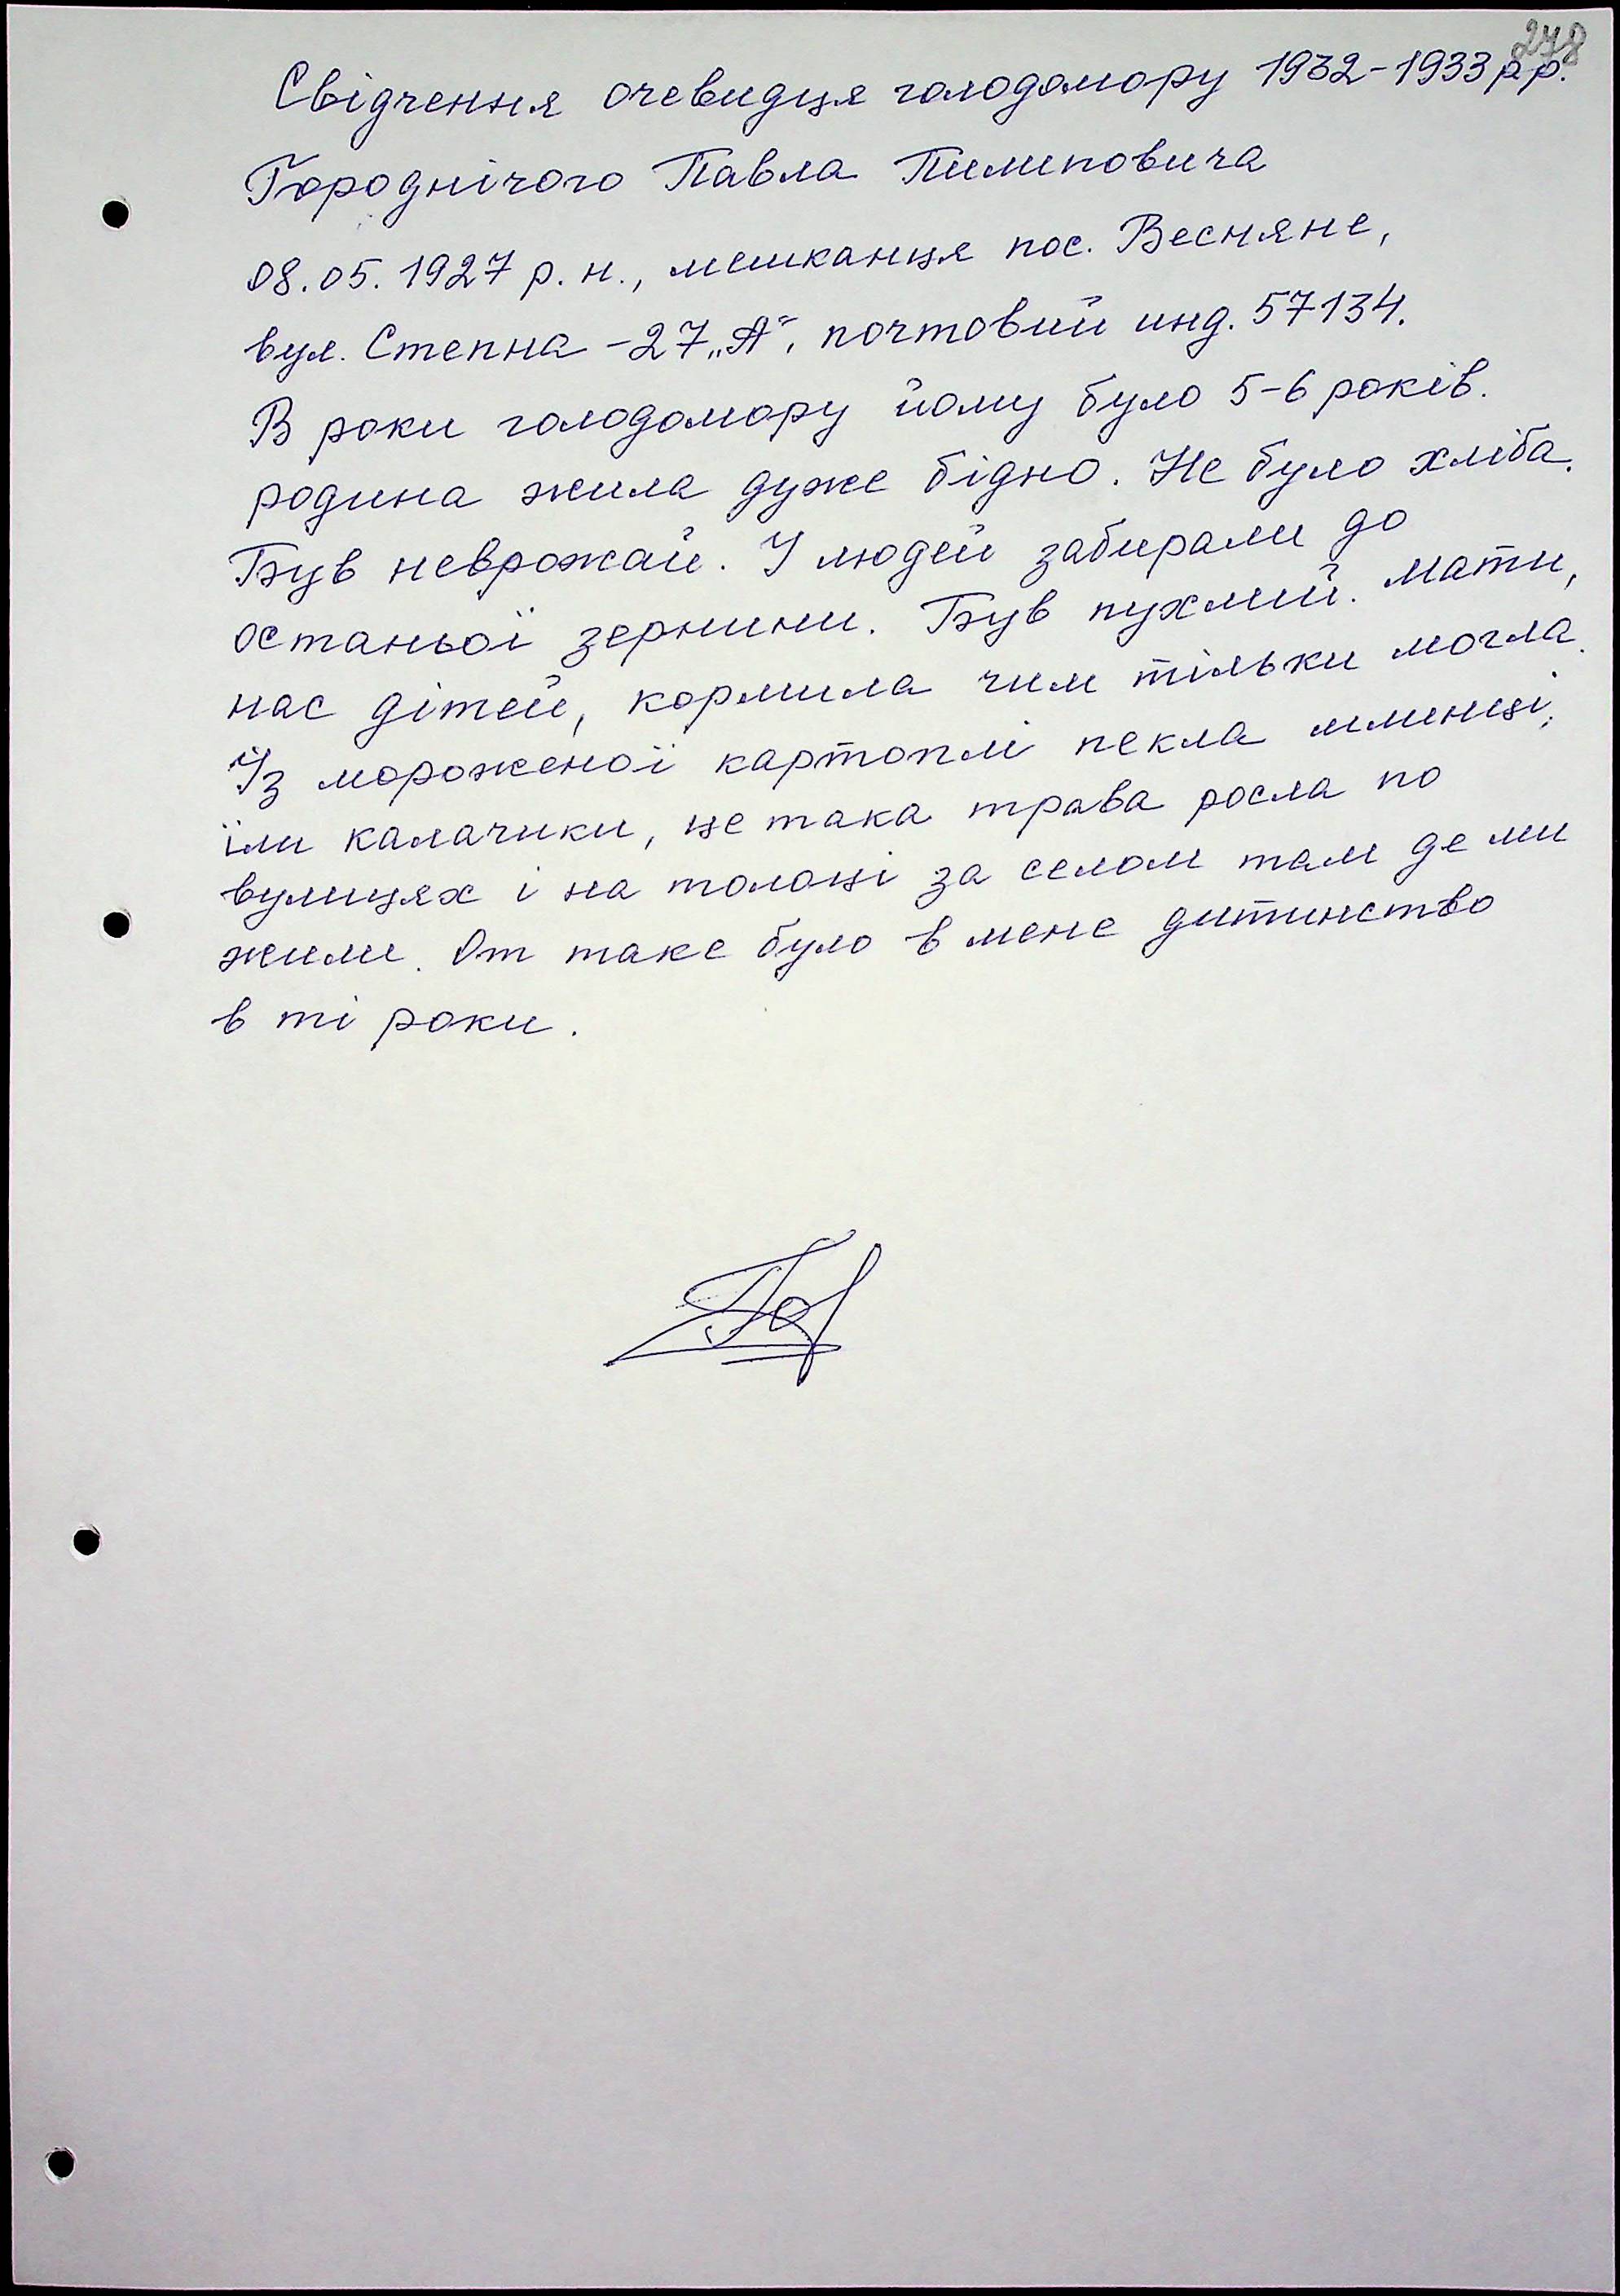 278
Свідчення очевидця голодомору 1932-1933 р.р.
Городнічого Павла Пилиповича
08.05.1927 р.н., мешканця пос. Весняне,
вул. Степна -27 „А", почтовий инд. 57134.
В роки голодомору йому було 5-6 років.
родина жила дуже бідно. Не було хліба.
Був неврожай. У людей забирали до
останьої зернини. Був пухлий. мати,
нас дітей, кормила чим тільки могла.
Із мороженої картоплі пекла млинці,
їли калачики, це така трава росла по
вулицях і на толоці за селом там де ми
жили. От таке було в мене дитинство
в ті роки.